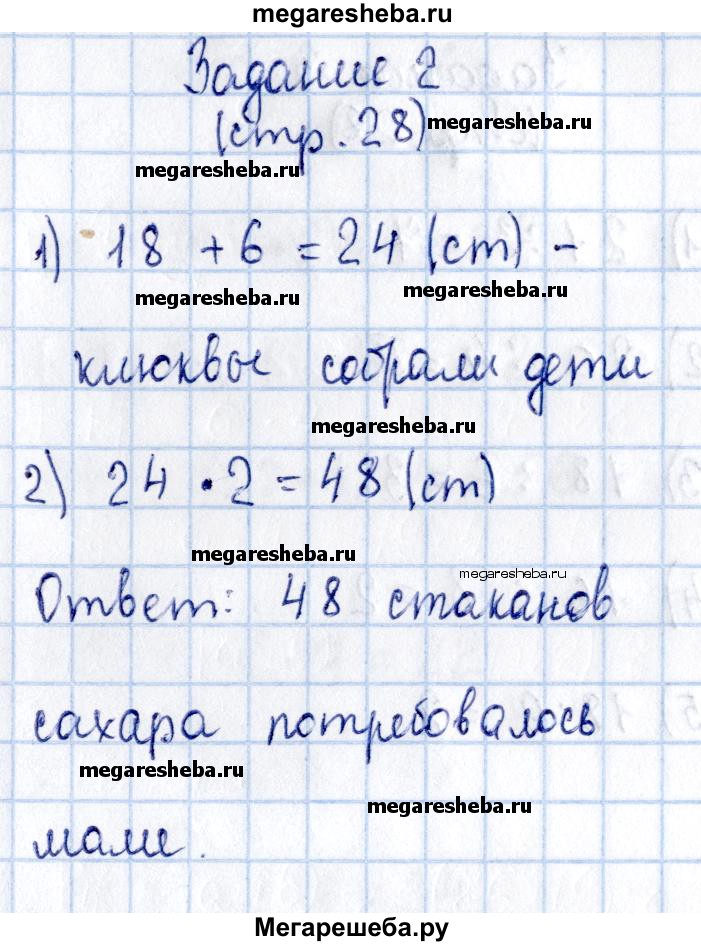 megaresheba.ru
Задание 2
(стр. 28) megaresheba.ru
megaresheba.ru
1) 18 + 6 = 24 (ст) -
megaresheba.ru megaresheba.ru
клюквы собрали дети
megaresheba.ru
2) 24 · 2 = 48 (ст)
megaresheba.ru
megaresheba.ru
Ответ: 48 стаканов
сахара потребовалось
megaresheba.ru
megaresheba.ru
маме.
Мегарешеба.ру